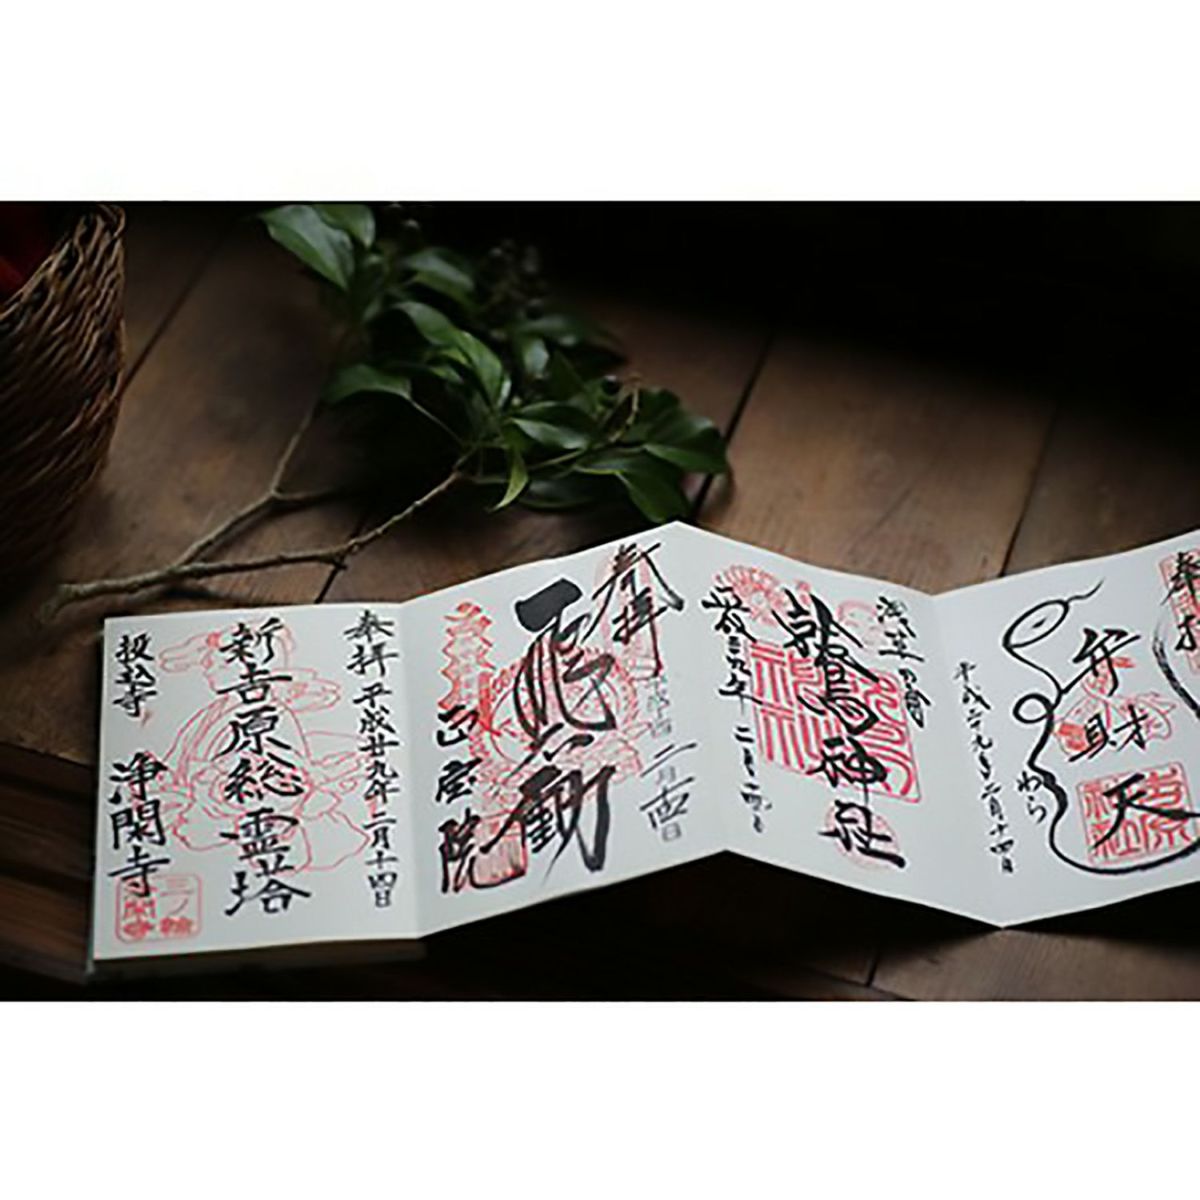 奉拝
弁財天
わら
平成二十九年二月十四日
浅草の酉
鷲神社
平成二九年二月十四日
奉拝
飛不動
正宝院
二月十四日
奉拝 平成廿九年二月十四日
新吉原総霊塔
投込寺 浄閑寺
三ノ輪
浄閑寺